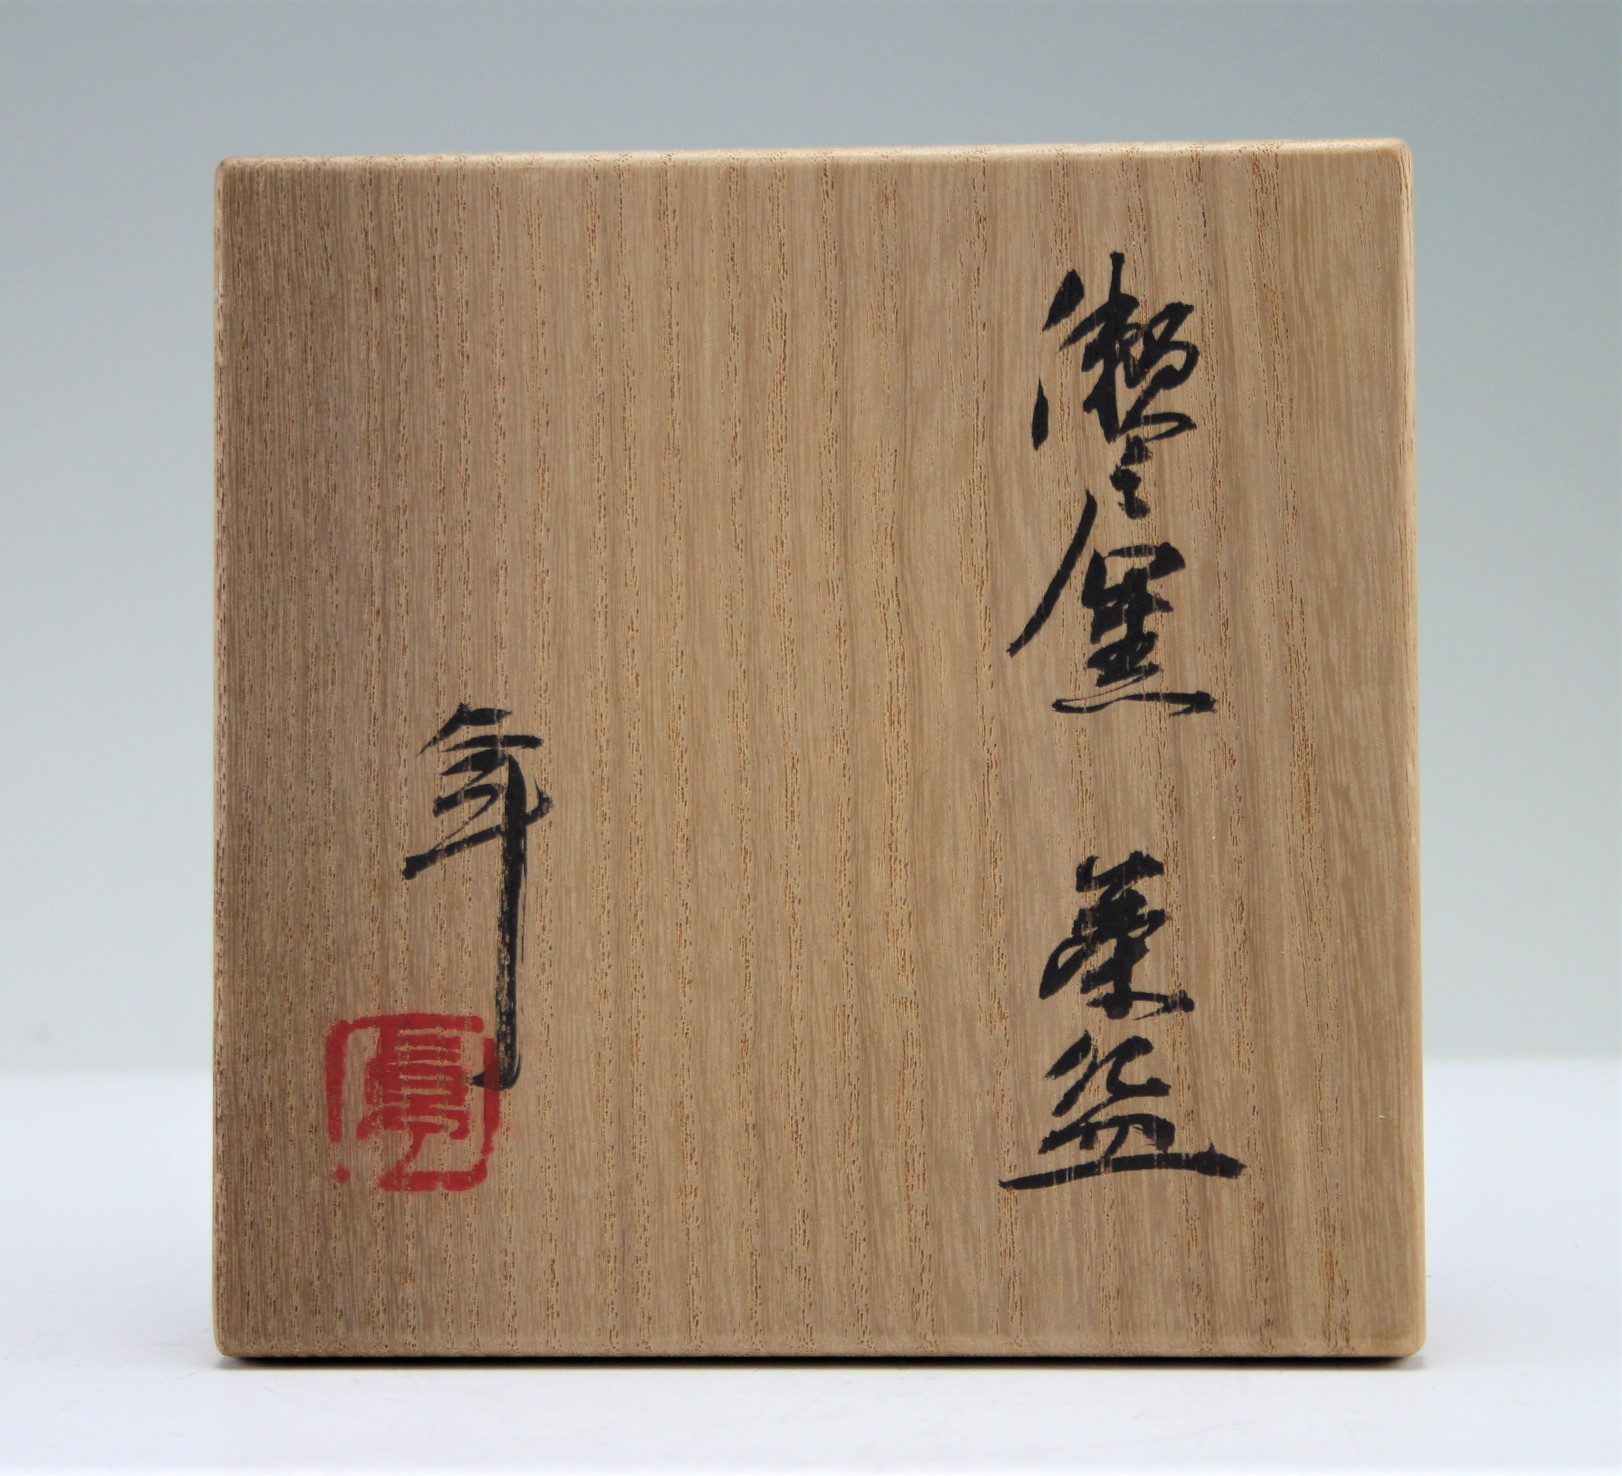 瀬戸黒 茶盌